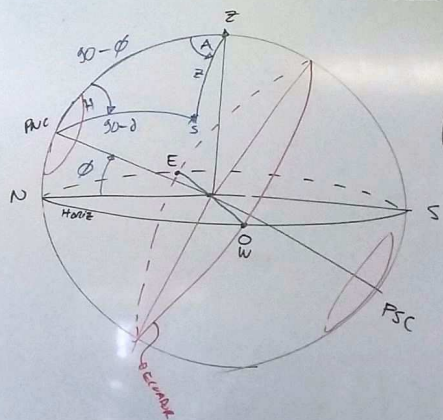 90-φ
A
Z
z
H
90-δ
S
PNC
φ
E
N
Horiz
S
O
W
PSC
ECUADOR